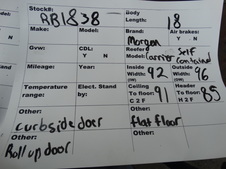 Stock#: RB1838 Body Length: 18
Make: Model: Brand: Morgan Air brakes: Y N
Gvw: CDL: Y N Reefer Model: Carrier Self Contained
Mileage: Year: Inside Width: 92 Outside Width: 96
Temperature range: Elect. Stand by: Ceiling To floor: 91 C 2 F Header To Floor: 85 H 2 F
Other: curbside door Other: flat floor
Other: Roll up door Other: